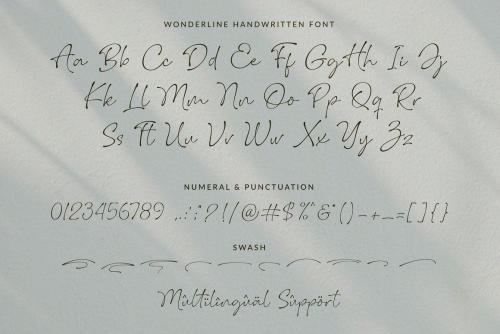 WONDERLINE HANDWRITTEN FONT
Aa Bb Cc Dd Ee Ff Gg Hh Ii Jj
Kk Ll Mm Nn Oo Pp Qq Rr
Ss Tt Uu Vv Ww Xx Yy Zz
NUMERAL & PUNCTUATION
0123456789 .,:;?!/@#$%^&*()-+_=[]{}
SWASH
Mûltîlîngûäl Sûppört